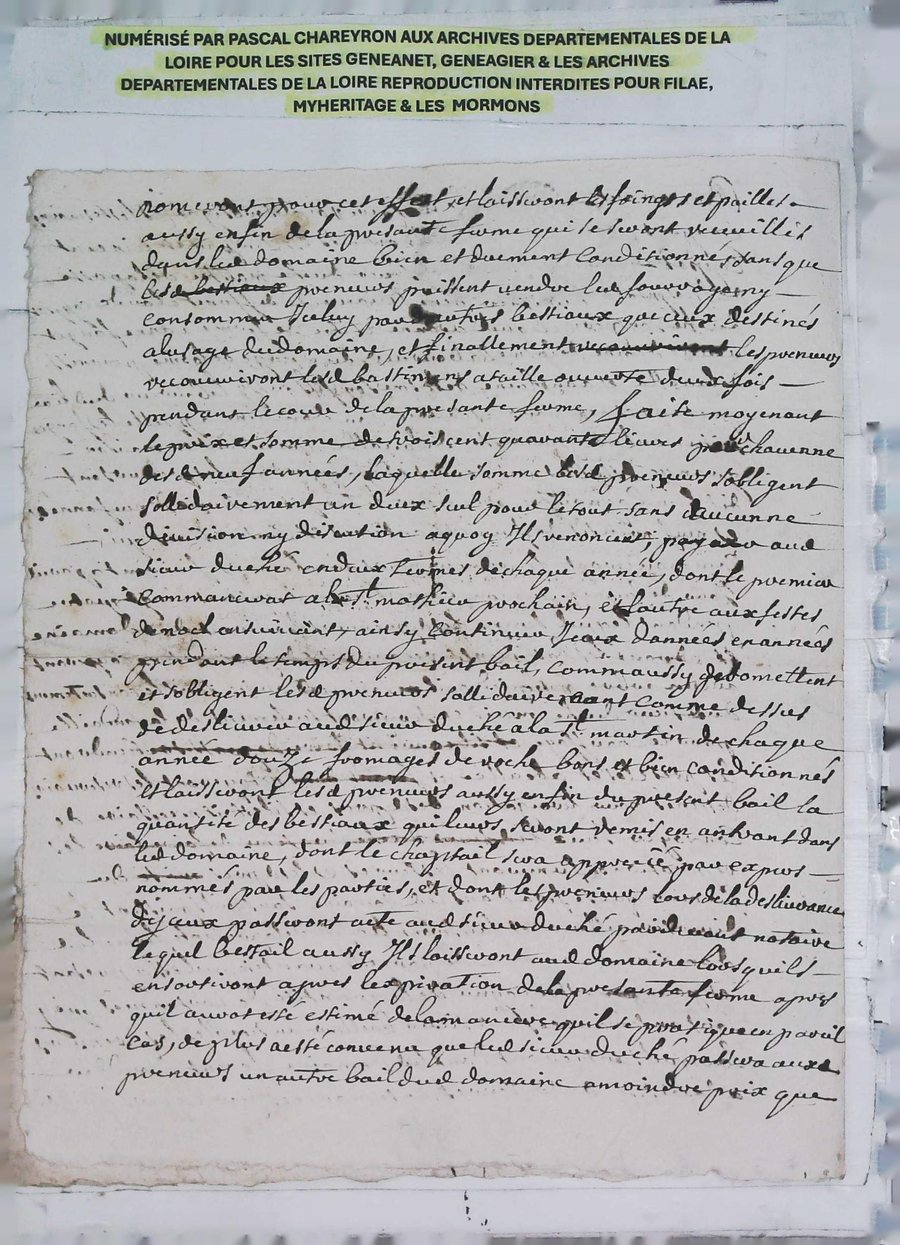 NUMÉRISÉ PAR PASCAL CHAREYRON AUX ARCHIVES DEPARTEMENTALES DE LA
LOIRE POUR LES SITES GENEANET, GENEAGIER & LES ARCHIVES
DEPARTEMENTALES DE LA LOIRE REPRODUCTION INTERDITES POUR FILAE,
MYHERITAGE & LES MORMONS
pour cet effet, et laisseront les foings et pailles
aussy enfin de la presante ferme qui se seront recueillis
dans led domaine bien et duement conditionnés sans que
lesd bestiaux preneurs puissent vendre led fourrage ny
consommer Iceluy par autres bestiaux que ceux destinés
alusage dudomaine, et finallement recouvriront les preneurs
recouvriront lesd bastimens ataille ouverte deux fois
pendant le cour de la presante ferme, faite moyenant
le prix et somme de trois cent quarante livres pour chacunne
desd neuf années, laquelle somme lesd preneurs sobligent
sollidairement un deux seul pour le tout sans aucunne
division ny discution aquoy Ils renoncent, payer aud
sieur duché en deux termes de chaque année, dont le premier
commancerat a la St mathieu prochain, et lautre aux festes
de noel ensuivant, ainsy continuer Iceux dannées en années
pendant le temps du present bail, comm aussy promettent
et sobligent lesd preneurs sollidairemant comme dessus
de deslivrer aud sieur duché a la St martin de chaque
année douze fromages de roche bons et bien conditionnés
et laisseront lesd preneurs aussy enfin du present bail la
quantité des bestiaux qui leurs seront remis en antrant dans
led domaine, dont le cheptail sera apprecié par expers
nommés par les parties, et dont les preneurs lors de la deslivrance
diceux passeront acte aud sieur duché pardevant notaire
lequel bestail aussy Ils laisseront aud domaine lorsquils
en sortiront apres lexpiration de la presante ferme apres
quil aurat esté estimé de la maniere quil se pratique en pareil
cas, de plus a esté convenu que led sieur duché passera aux
preneurs un autre bail dud domaine a moindre prix que